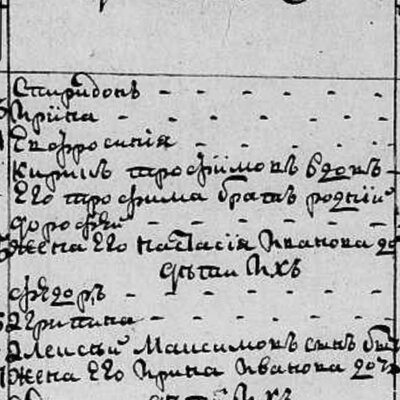 Спиридонъ
Ирина
Евфросинiя
Кирилъ трофимовъ вдовъ
Его трофима братъ родный
дорофей
жена Его Настасiя Иванова до
дѣти Ихъ
фѣдоръ
Агрипина
Алексѣй Максимовъ сынъ
жена Его Ирина Иванова доч
Ихъ